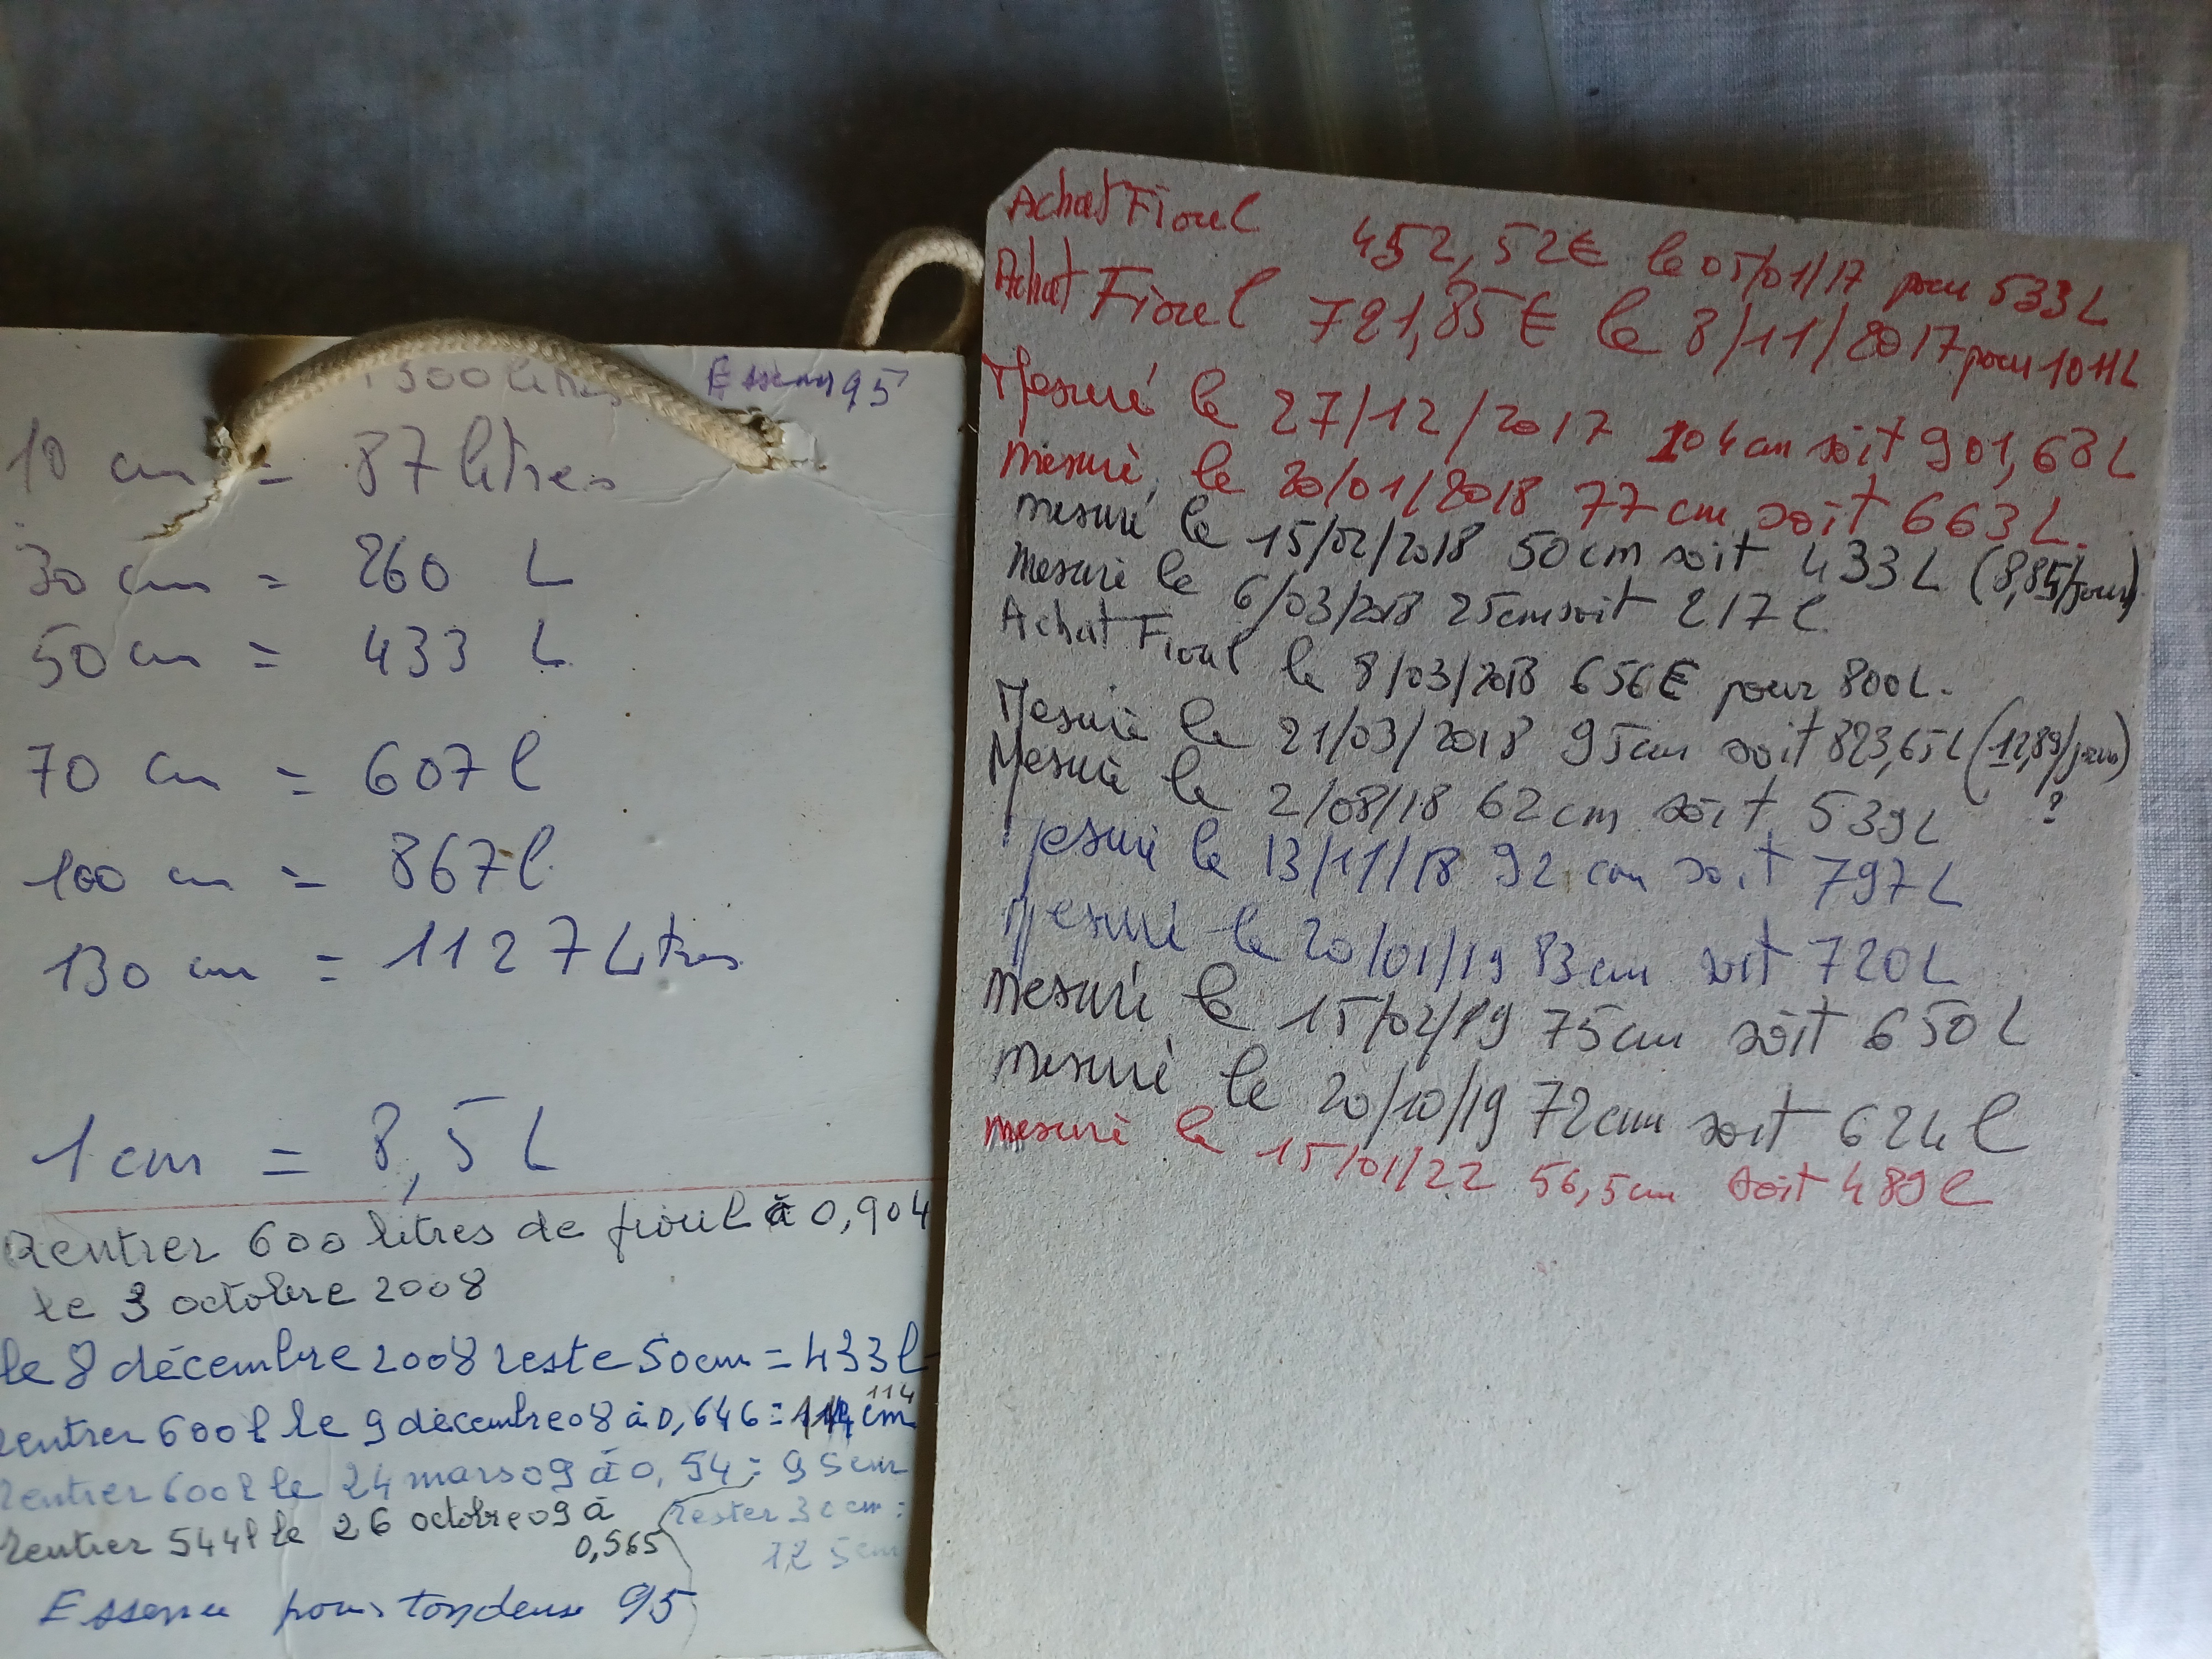 1300 litres Essence 95
10 cm = 87 litres
30 cm = 260 L
50 cm = 433 L
70 cm = 607 l
100 cm = 867 l
130 cm = 1127 Litres
1 cm = 8,5 L
Rentrer 600 litres de fioul à 0,904
le 3 octobre 2008
le 8 décembre 2008 reste 50 cm = 433 l
rentrer 600 l le 9 décembre 08 à 0,646 = 114 cm
114
rentrer 600 l le 24 mars 09 à 0,54 = 95 cm
rentrer 544 l le 26 octobre 09 à
0,565
rester 30 cm =
125 cm
Essence pour tondeuse 95
Achat Fioul 452,52€ le 05/01/17 pour 533L
Achat Fioul 721,85€ le 8/11/2017 pour 1011L
Mesuré le 27/12/2017 104cm soit 901,68L
mesuré le 20/01/2018 77cm soit 663L.
mesuré le 15/02/2018 50cm soit 433L (8,85/jour)
mesuré le 6/03/2018 25cm soit 217l
Achat Fioul le 8/03/2018 656€ pour 800L.
Mesuré le 21/03/2018 95cm soit 823,65L (12,89/jour)
?
Mesuré le 2/08/18 62cm soit 539L
Mesuré le 13/11/18 92 cm soit 797L
Mesuré le 20/01/19 83cm soit 720L
mesuré le 15/02/19 75cm soit 650L
mesuré le 20/10/19 72cm soit 624l
mesuré le 15/01/22 56,5cm soit 489l